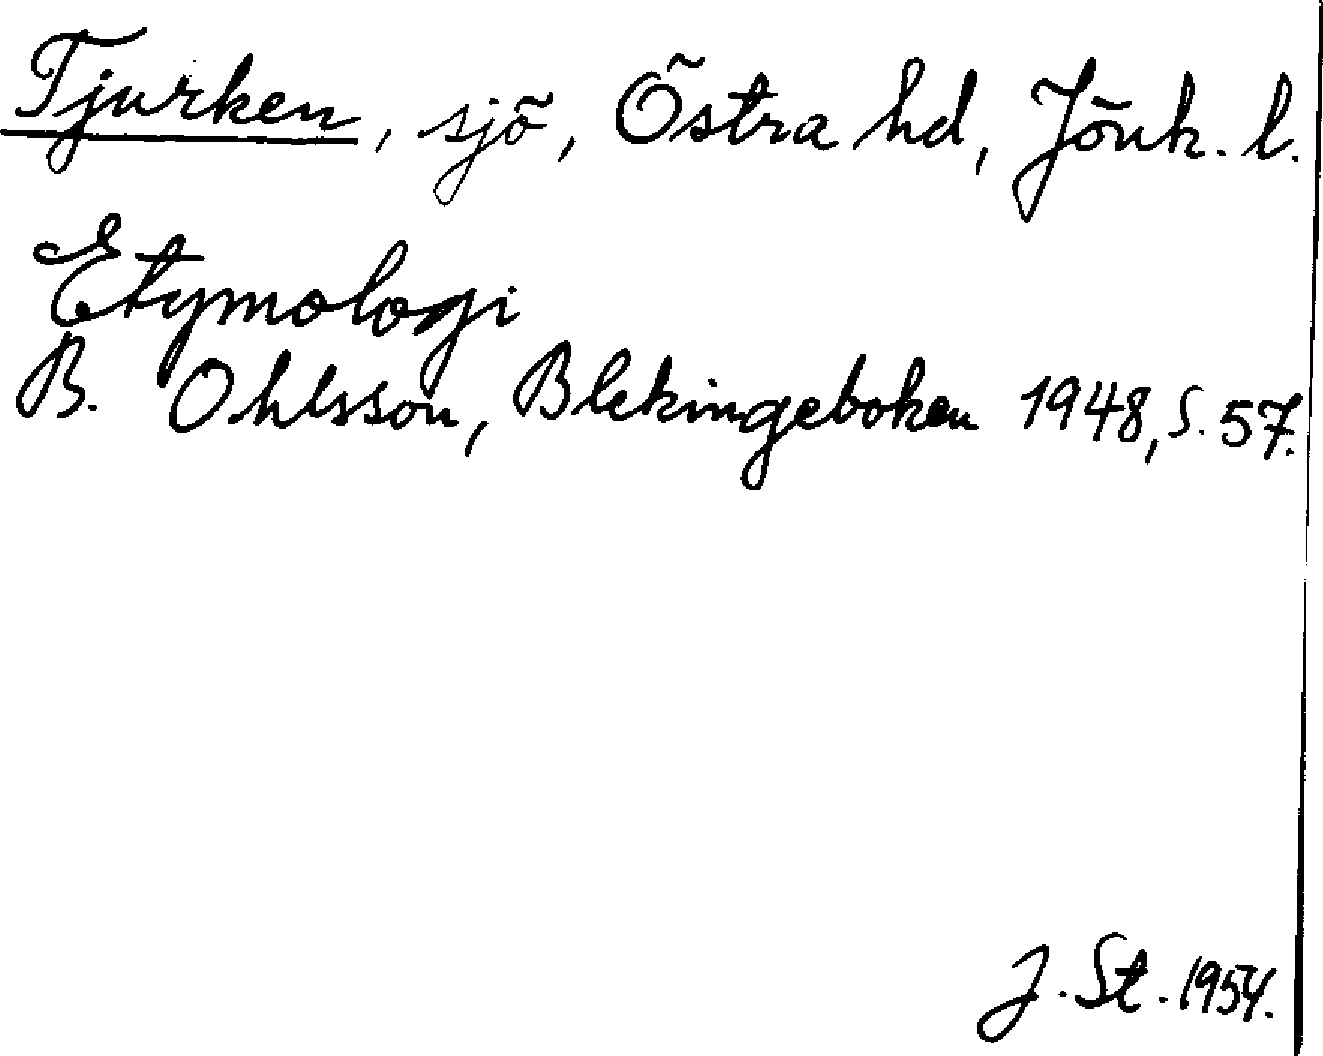 Tjurken, sjö, Östra hd, Jönk. l.
Etymologi
B. Ohlsson, Blekingeboken 1948, s. 57.
J. St. 1954.